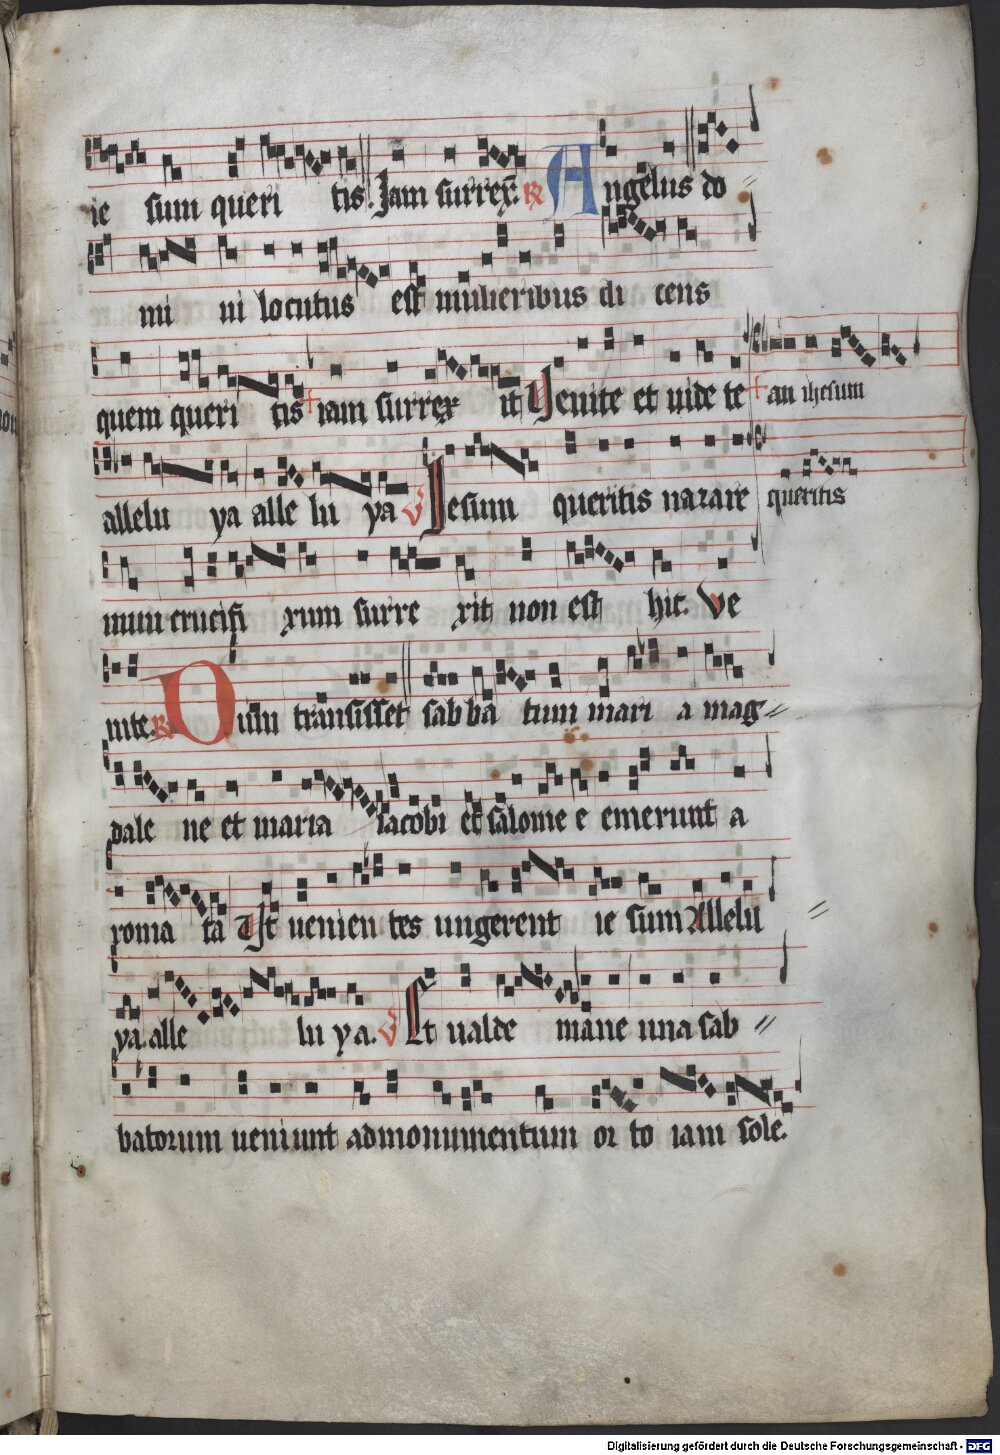 ie sum queri tis. Jam surrex. R Angelus do
mi ni locutus est mulieribus di cens
quem queri tis + iam surrex it Uenite et uide te + an ihesum
allelu ya alle lu ya V Jesum queritis nazare queritis
num crucifi xum surre xit non est hic. Ve
nite. R Dum transisset sabba tum mari a mag
dale ne et maria iacobi et salome e emerunt a
roma ta Ut uenien tes ungerent ie sum Allelu
ya. alle lu ya. V Et ualde mane una sab
batorum ueniunt ad monumentum or to iam sole.
Digitalisierung gefördert durch die Deutsche Forschungsgemeinschaft - DFG